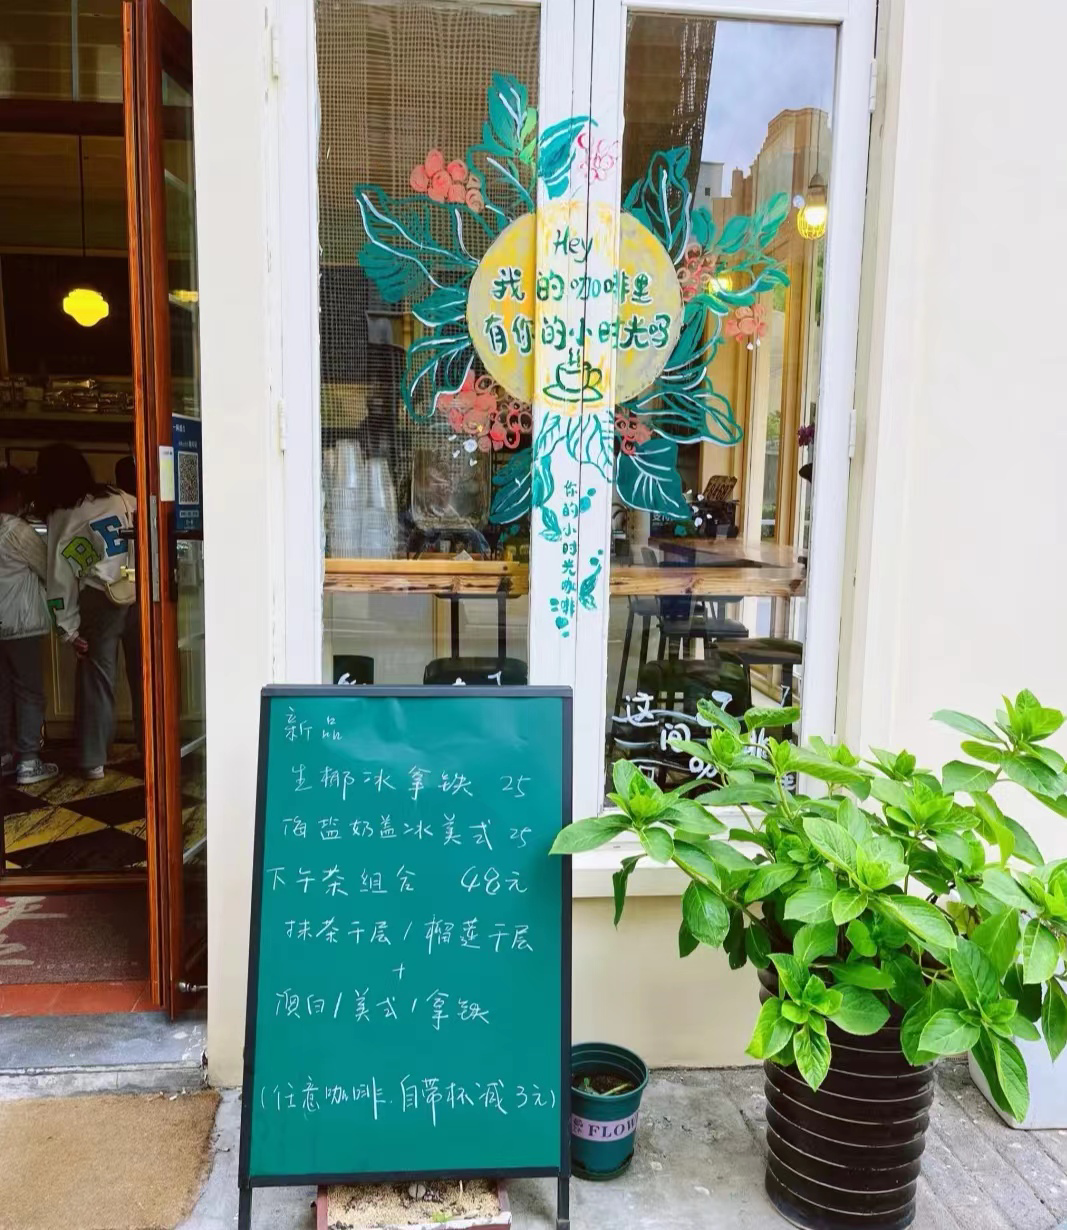 Hey
我的咖啡里
有你的小时光吗
你的小时光咖啡
新品
生椰冰拿铁 25
海盐奶盖冰美式 25
下午茶组合 48元
抹茶千层/榴莲千层
+
澳白/美式/拿铁
(任意咖啡.自带杯减3元)
这间
FLOW
BE